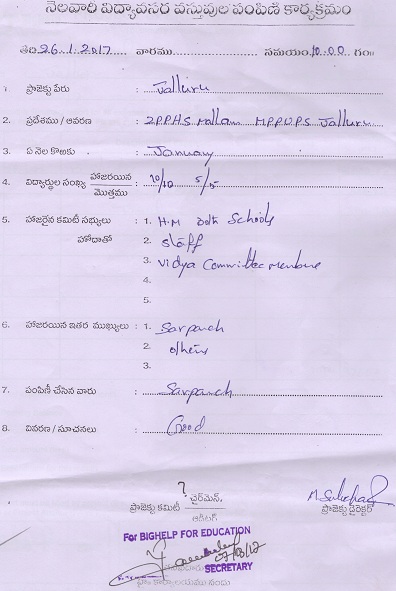 నెలవారి విద్యావసర వస్తువుల పంపిణి కార్యక్రమం
తేది 26.1.2017 వారము సమయం 10.00 గం॥
1. ప్రాజెక్టు పేరు : Jalluru
2. ప్రదేశము / ఆవరణ : ZPPHS Mallam MPPUPS Jalluru
3. ఏ నెల కొఱకు : January
4. విద్యార్థుల సంఖ్య హాజరయిన / మొత్తము : 10/10 5/5
5. హాజరైన కమిటీ సభ్యులు : 1. H.M Both Schools
హోదాతో 2. staff
3. Vidya Committee Membere
4.
5.
6. హాజరయిన ఇతర ముఖ్యులు : 1. Sarpanch
2. others
3.
7. పంపిణీ చేసిన వారు : Sarpanch
8. వివరణ / సూచనలు : Good
?
ప్రాజెక్టు కమిటీ చైర్‌మెన్,
ప్రాజెక్టు డైరెక్టర్
ఆడిటర్
For BIGHELP FOR EDUCATION
SECRETARY